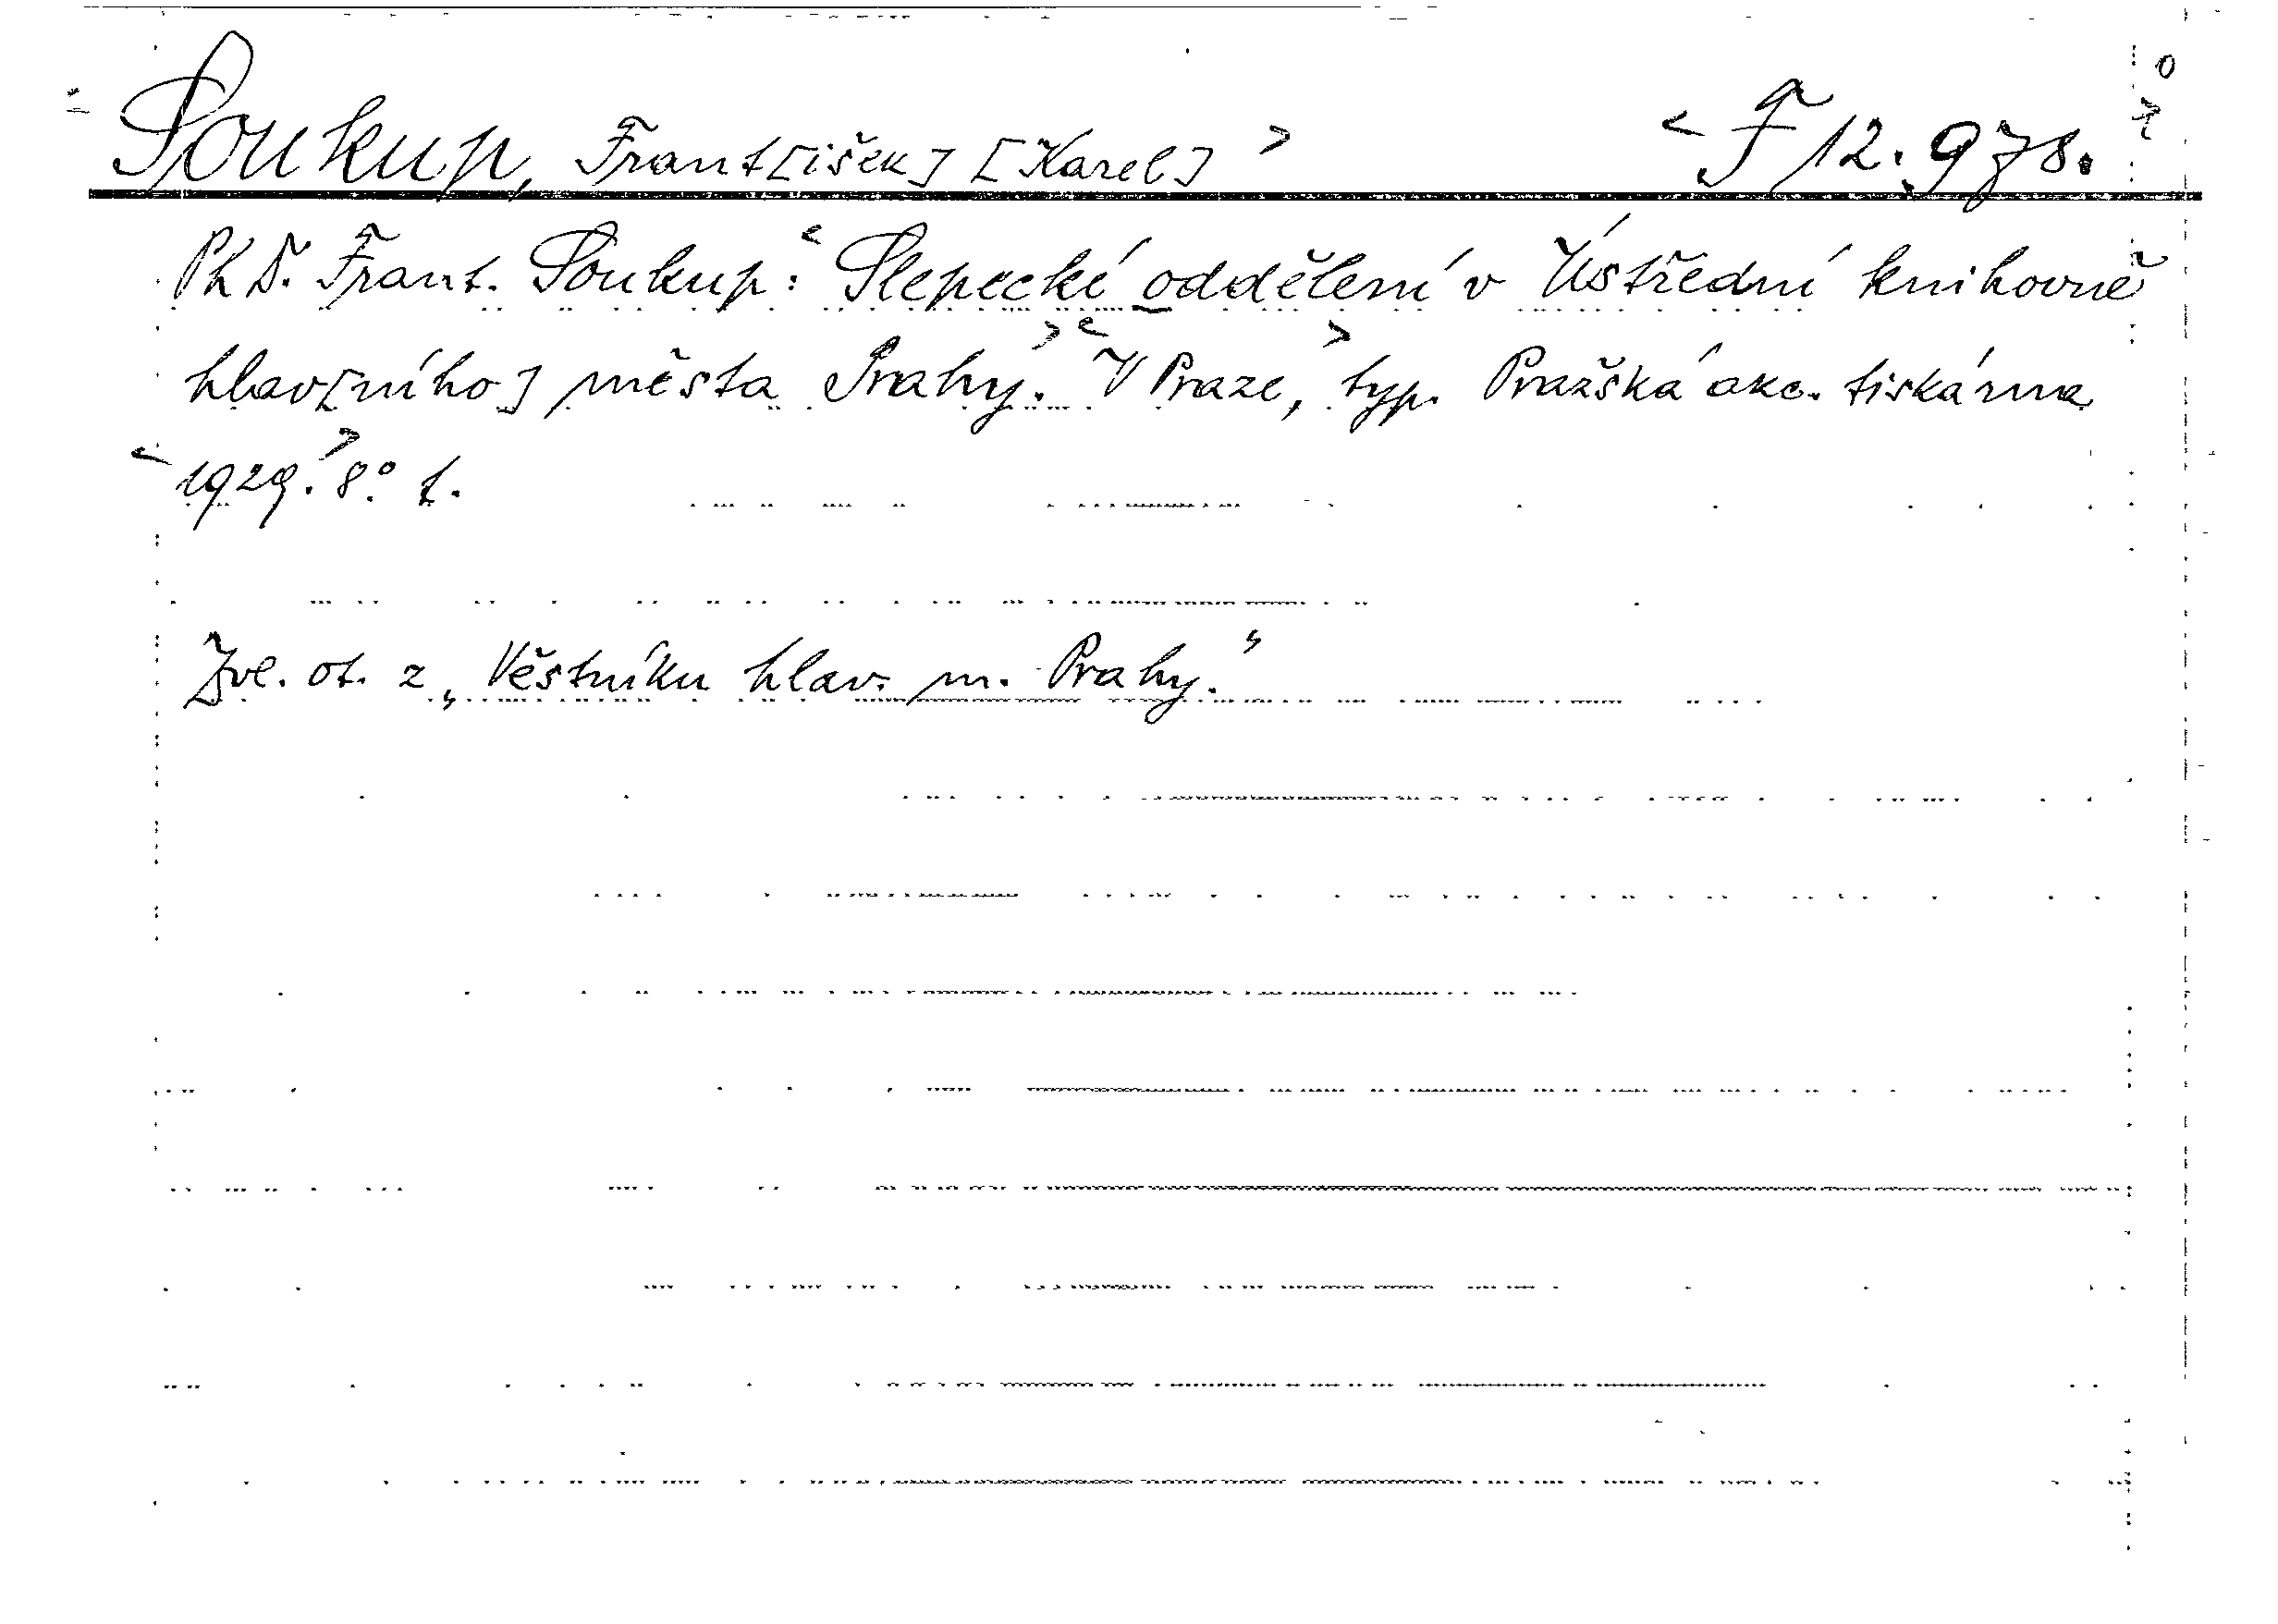 Soukup, Frant[išek] [Karel] F 12.978.
PhD. Frant. Soukup: Slepecké oddělení v Ústřední knihovně
hlav[ního] města Prahy. V Praze, typ. Pražská akc. tiskárna
1929. 8° f.
Zvl. ot. z „Věstníku hlav. m. Prahy.“